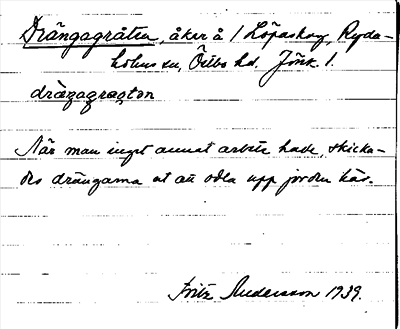 Drängagråten, åker å 1 Löpaskog, Ryda-
holms sn, Östbo hd. Jönk. l.
dräŋagragtən
När man inget annat arbete hade, skicka-
des drängarna ut att odla upp jorden här.
Fritz Andersson 1939.